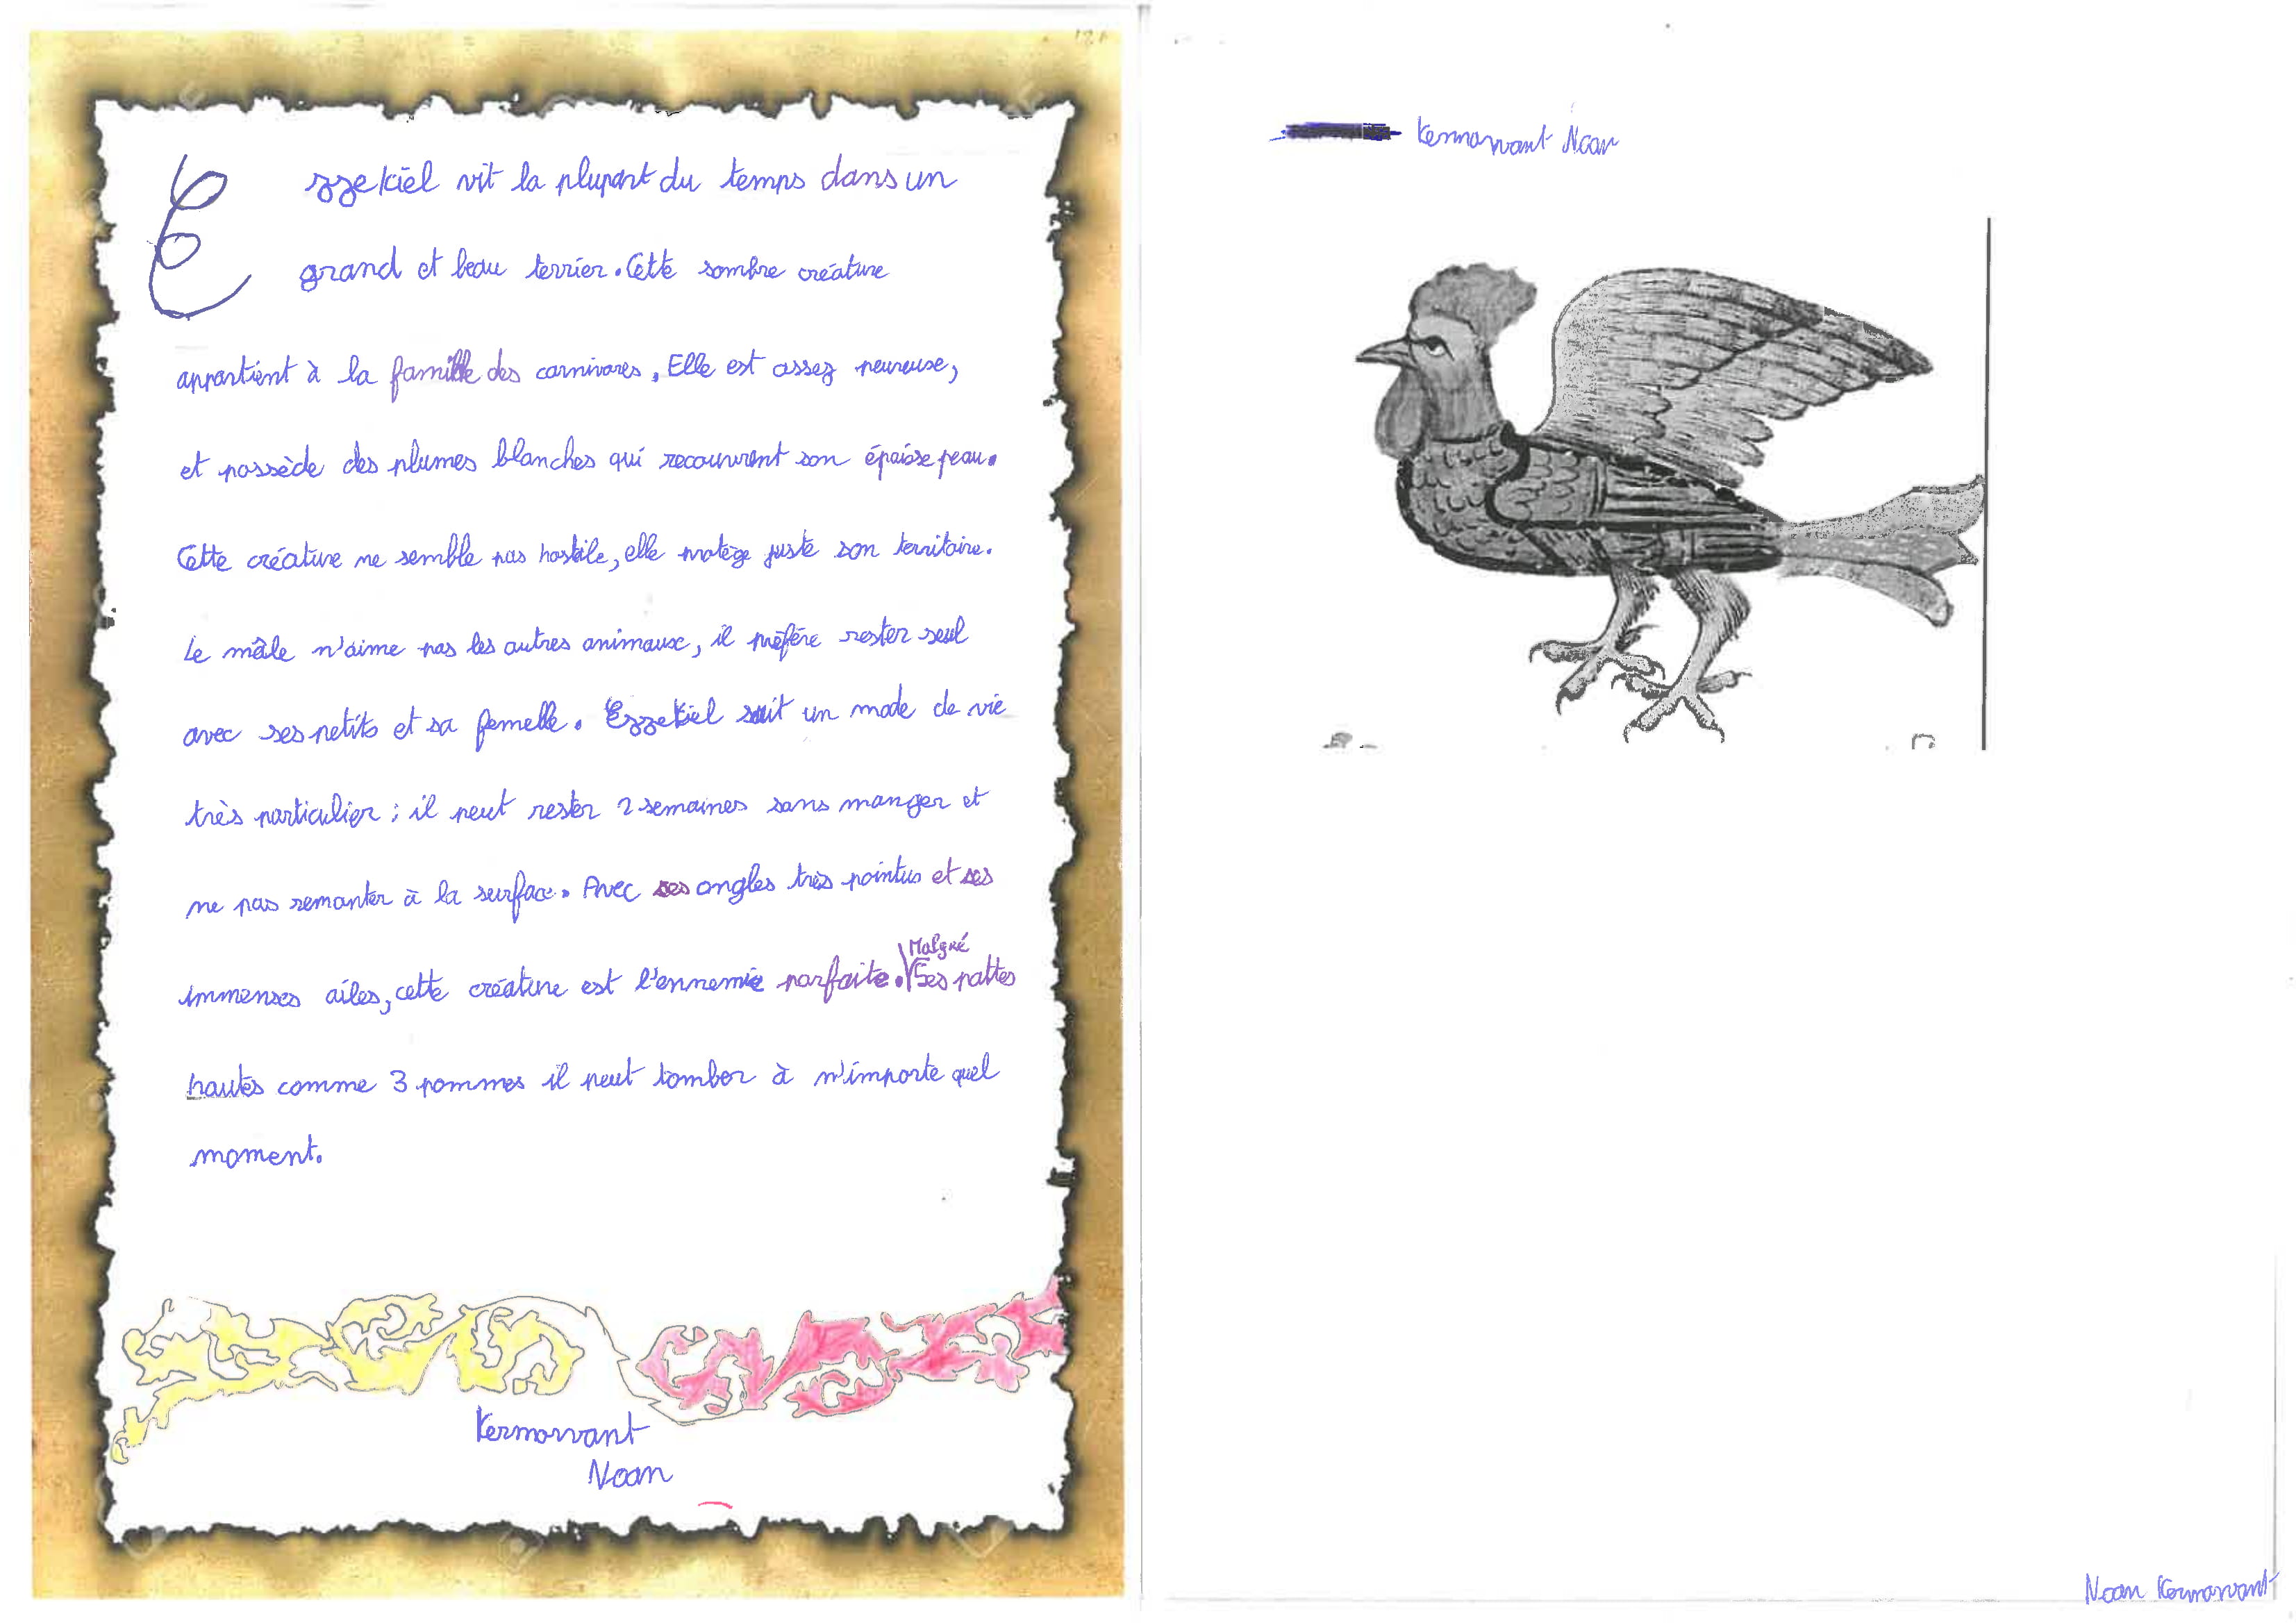 Ezzekiel vit la plupart du temps dans un
grand et beau terrier. Cette sombre créature
appartient à la famille des carnivores. Elle est assez peureuse,
et possède des plumes blanches qui recouvrent son épaisse peau.
Cette créature ne semble pas hostile, elle protège juste son territoire.
Le mâle n'aime pas les autres animaux, il préfère rester seul
avec ses petits et sa femelle. Ezzekiel suit un mode de vie
très particulier ; il peut rester 2 semaines sans manger et
ne pas remonter à la surface. Avec ses ongles très pointus et ses
immenses ailes, cette créature est l'ennemie parfaite. Malgré Ses pattes
hautes comme 3 pommes il peut tomber à n'importe quel
moment.
Kermorvant
Noan
Kermorvant Noan
Noan Kermorvant